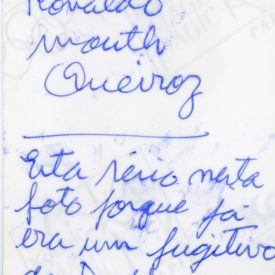 Ronaldo
mouth
Queiroz
Esta sério nesta
foto porque já
era um fugitivo